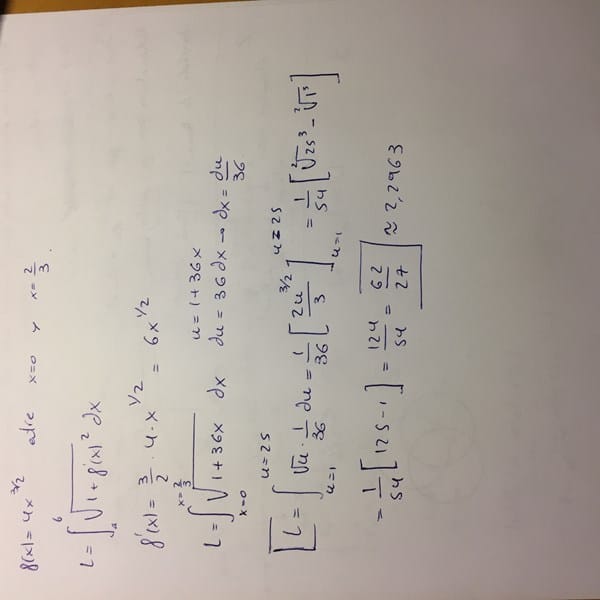 f(x) = 4x^{3/2} entre x=0 y x=2/3.
L = ∫_a^b √(1+f'(x)^2) dx
f'(x) = 3/2 · 4 · x^{1/2} = 6x^{1/2}
L = ∫_{x=0}^{x=2/3} √(1+36x) dx u = 1+36x
du = 36dx → dx = du/36
L = ∫_{u=1}^{u=25} √u · 1/36 du = 1/36 [2u^{3/2}/3]_{u=1}^{u=25} = 1/54 [²√25³ - ²√1³]
= 1/54 [125-1] = 124/54 = 62/27 ≈ 2,2963